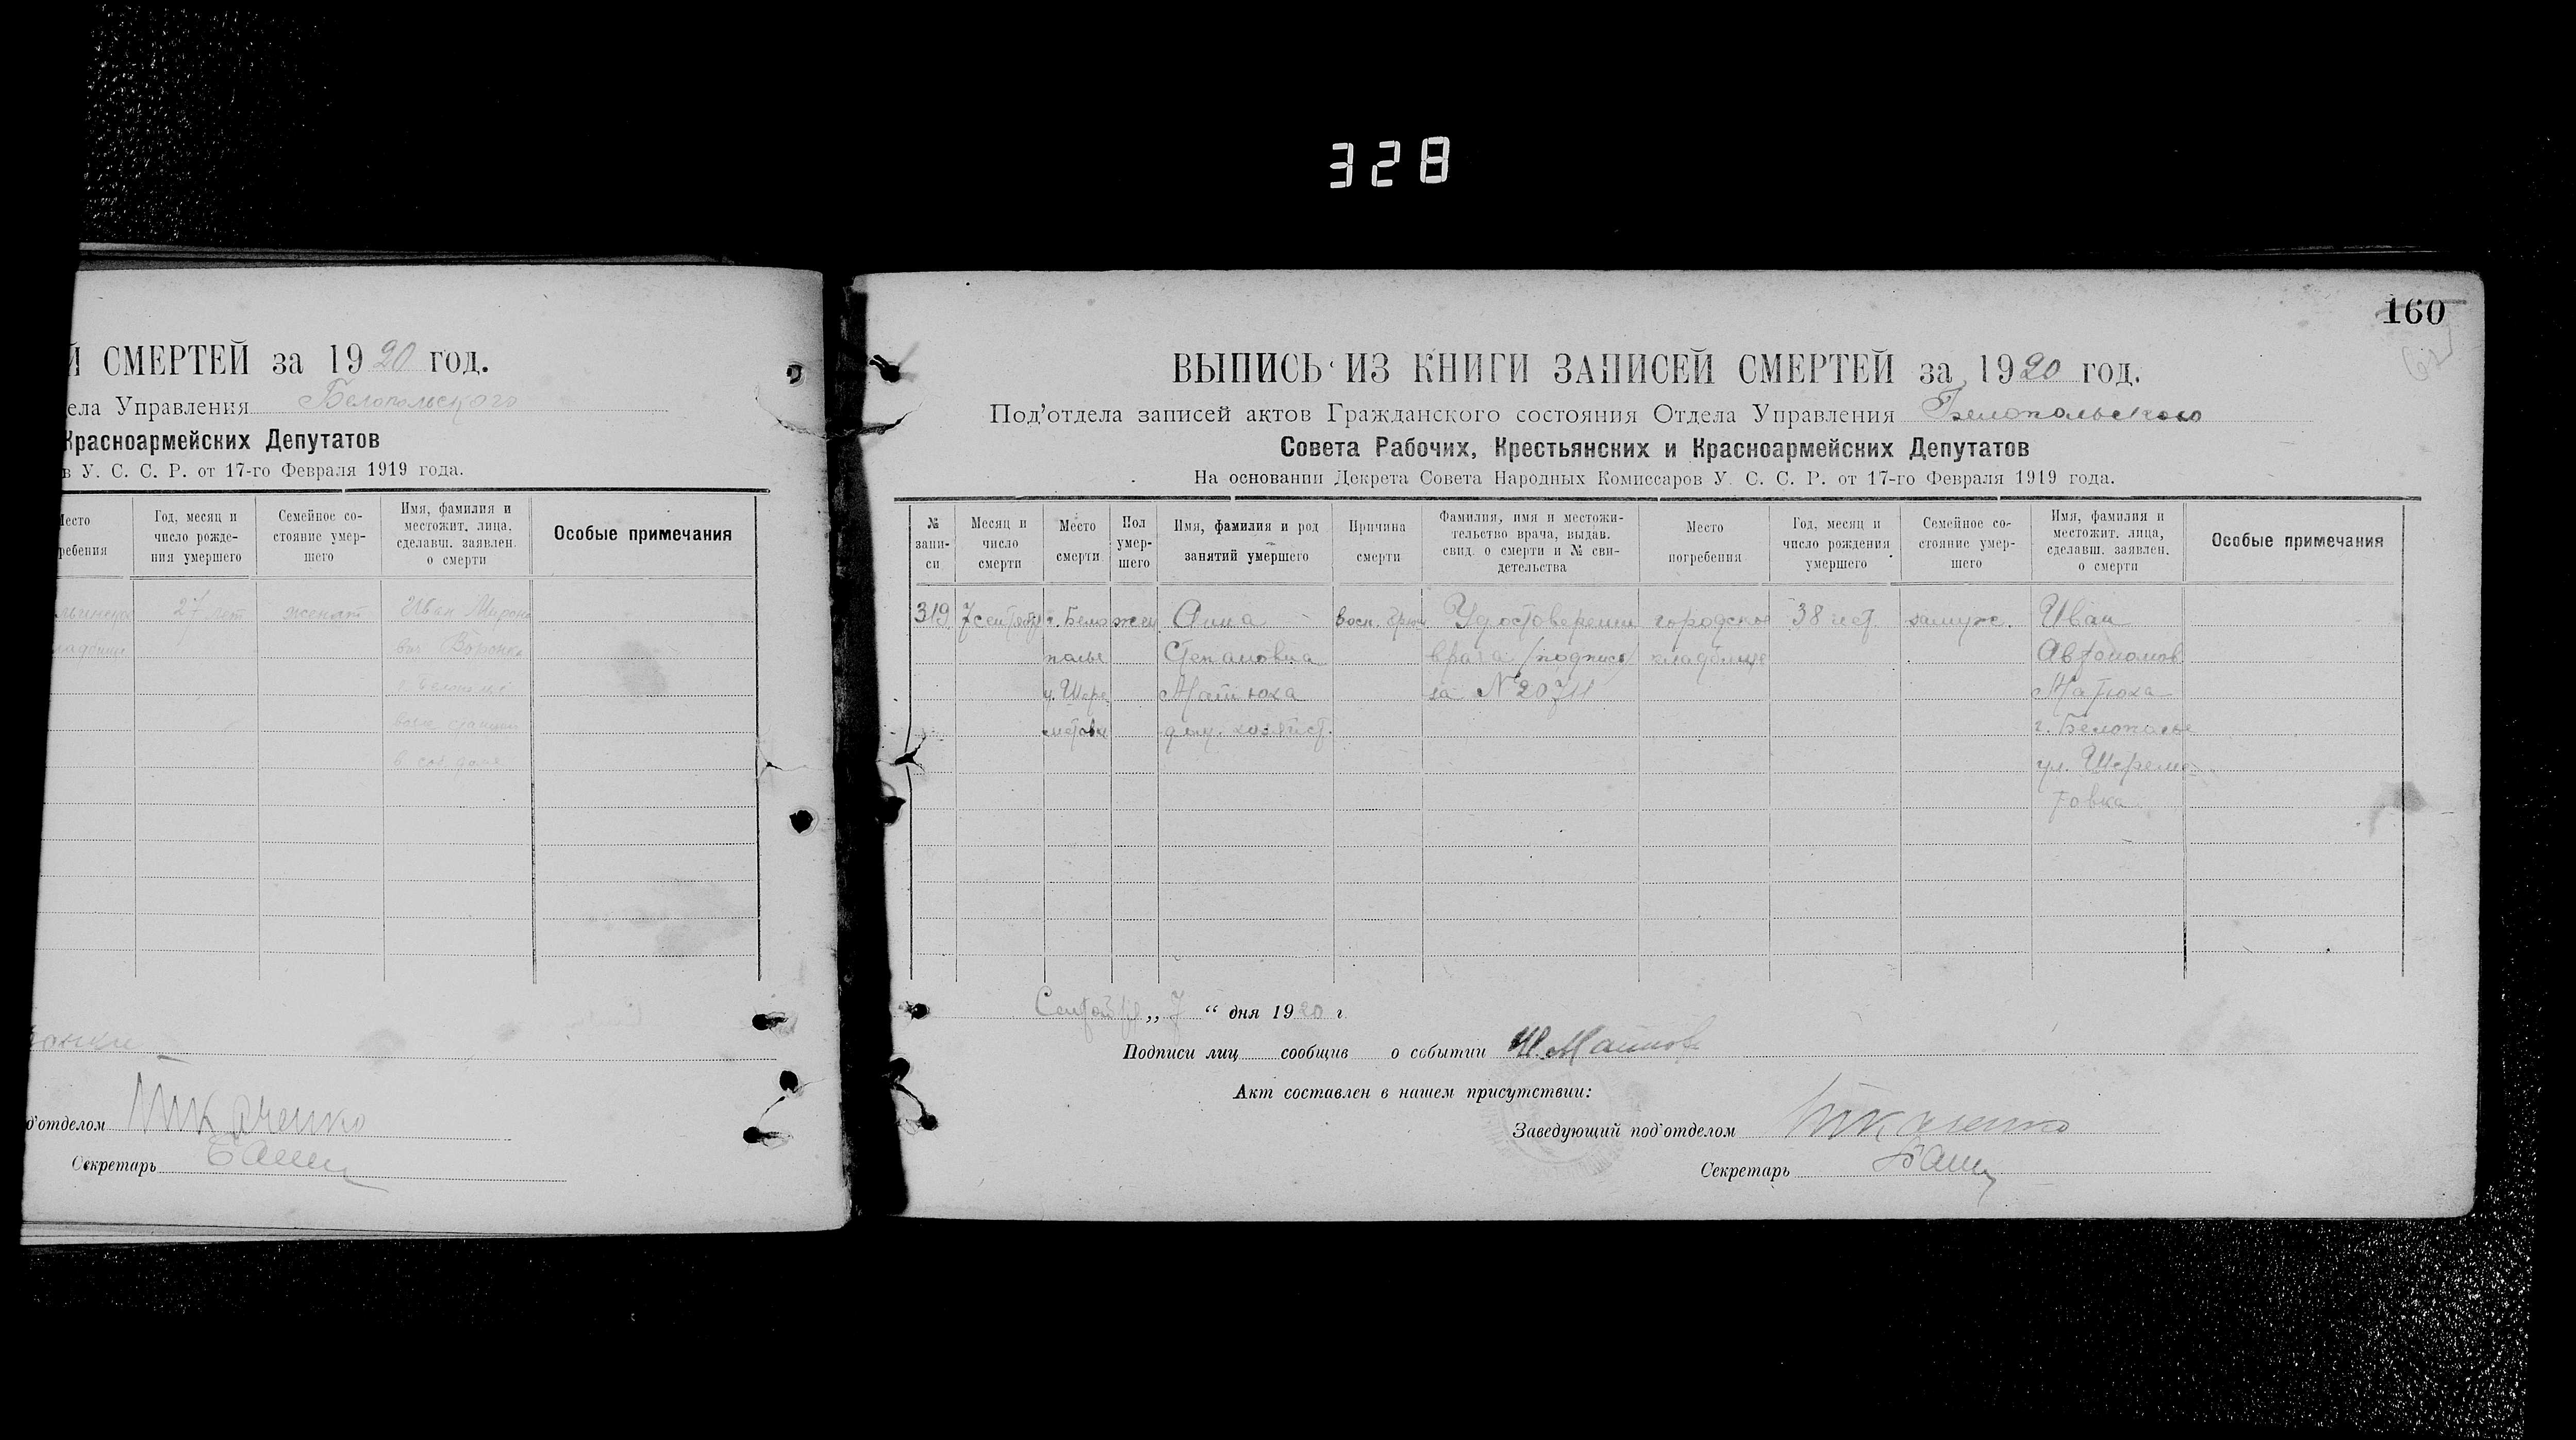 328
Й СМЕРТЕЙ за 1920 год.
ела Управления Белопольского
Красноармейских Депутатов
в У. С. С. Р. от 17-го Февраля 1919 года.
Место
ребения
Год, месяц и
число рожде-
ния умершего
Семейное со-
стояние умер-
шего
Имя, фамилия и
местожит. лица,
сделавш. заявлен.
о смерти
Особые примечания
27 лет
женат
Иван Мироно
вич Воронка
возле станции
в соб. доме
д'отделом Ткаченко
Секретарь
160
ВЫПИСЬ ИЗ КНИГИ ЗАПИСЕЙ СМЕРТЕЙ за 1920 год.
Под'отдела записей актов Гражданского состояния Отдела Управления Белопольского
Совета Рабочих, Крестьянских и Красноармейских Депутатов
На основании Декрета Совета Народных Комиссаров У. С. С. Р. от 17-го Февраля 1919 года.
№
запи-
си
Месяц и
число
смерти
Место
смерти
Пол
умер-
шего
Имя, фамилия и род
занятий умершего
Причина
смерти
Фамилия, имя и местожи-
тельство врача, выдав.
свид. о смерти и № сви-
детельства
Место
погребения
Год, месяц и
число рождения
умершего
Семейное со-
стояние умер-
шего
Имя, фамилия и
местожит. лица,
сделавш. заявлен.
о смерти
Особые примечания
319
7 сентября
г. Бело
полье
у. Шере
метовка
жен
Анна
Степановна
Матюха
дом. хозяйст.
восп.
Удостоверении
врача (подпись)
за №2071
городское
кладбище
38 лет.
замуж.
Иван
Автономов
Матюха
г. Белополье
ул. Шереме
товка
Сентября „7“ дня 1920 г.
Подписи лиц сообщив о событии И.
Акт составлен в нашем присутствии:
Заведующий под'отделом Ткаченко
Секретарь